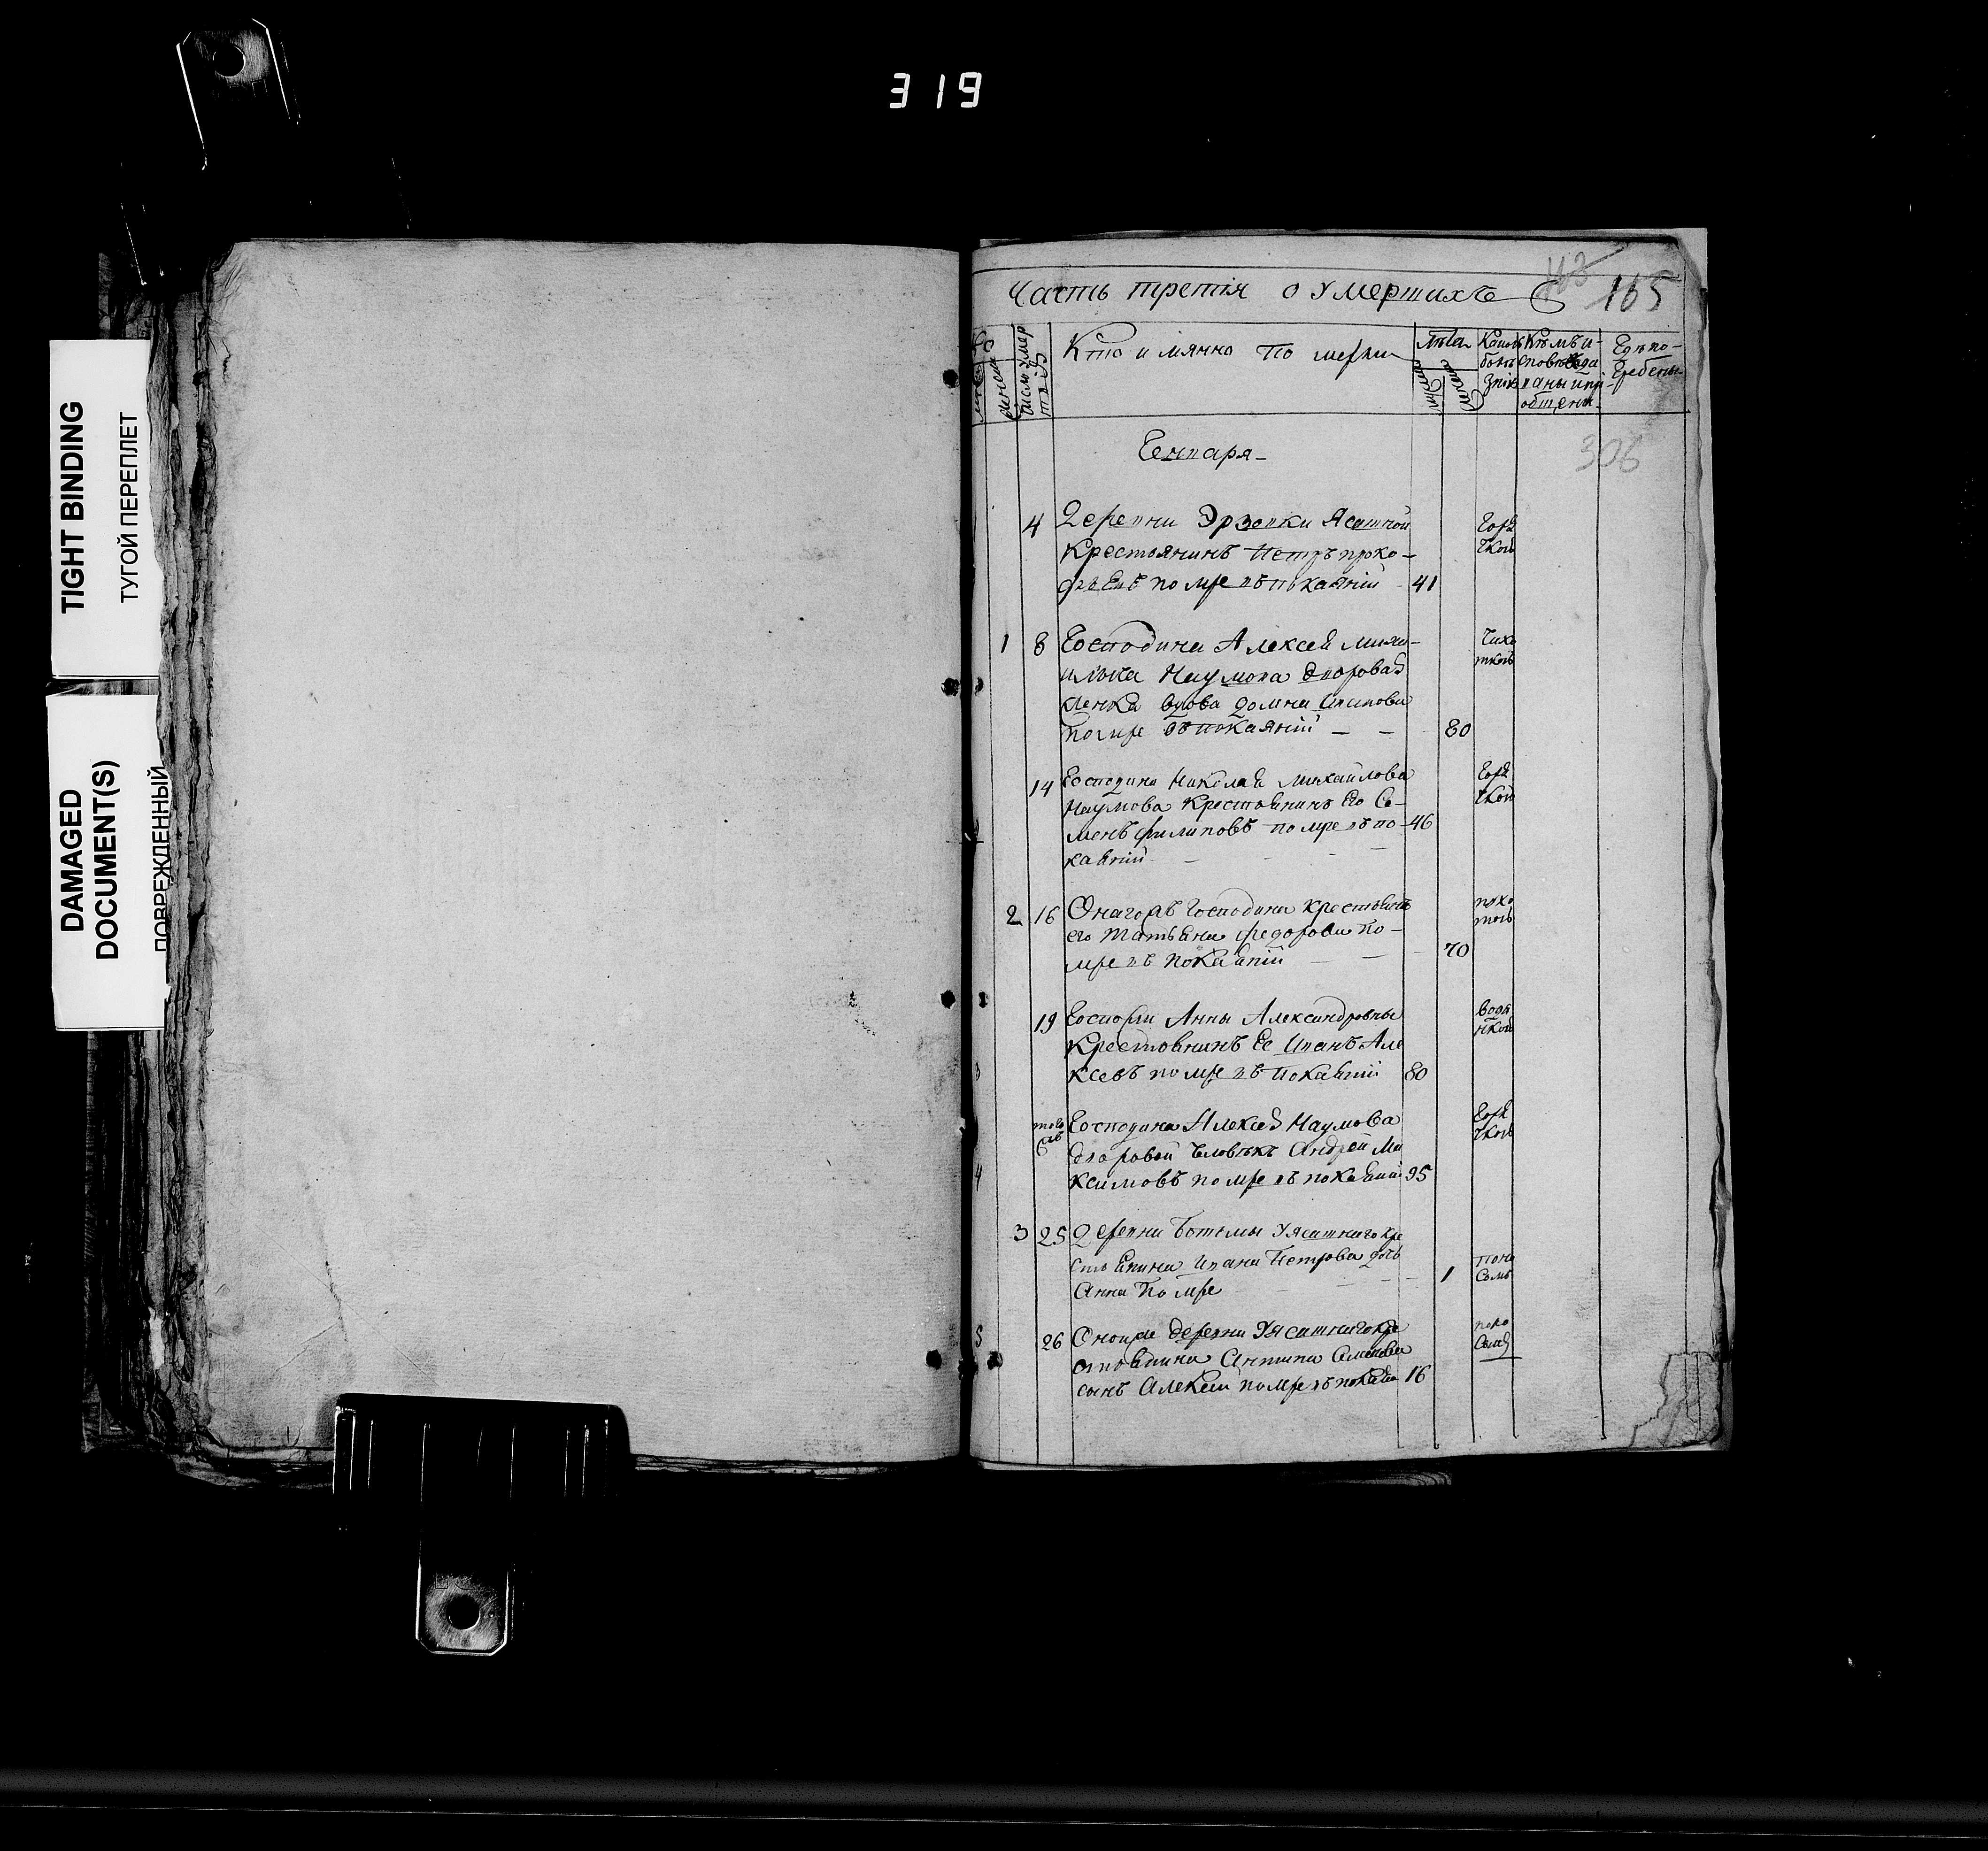 319
TIGHT BINDING
ТУГОЙ ПЕРЕПЛЕТ
DAMAGED
DOCUMENT(S)
ПОВРЕЖДЕННЫЙ
Часть третiя о умершихъ
165
306
Кто имянно померли
лѣта
Какою
болѣ
знiю
Кѣмъ и
споведа
ны и прi
общены
Гдѣ по-
гребены
Генваря
4 Деревни Эрзовки Ясашной
крестьянинъ Петръ проко-
фьевъ помре въ покаянiи 41
Горя
чкой
1 8 Господина Алексея михаи
илова Наумова дворовая
женка вдова домна
помре въ покаянiи 80
14 Господина Николая михайлова
Наумова крестьянинъ Его Се-
менъ филиповъ помре въ по- 46
каянiи
Горя
чкой
2 16 Онагожъ господина
его татьяна федорова по-
мре въ покаянiи 70
19 Госпожи Анны Александровны
крестьянинъ Ее Иванъ Але
ксевъ помре въ покаянiи 80
водя
нкой
того
Господина Алексея Наумова
дворовой человекъ Андрей Ма
ксимовъ помре въ покаянiи 95
Горя
чкой
3 25 Деревни Ботьмы Уясашнаго кре
стьянина ивана Петрова дочь
Анна помре 1
поно
сомъ
5 26 Оной же деревни Уясашнаго кре
стьянина Антипа Семенова
сынъ Алексей помре въ 16